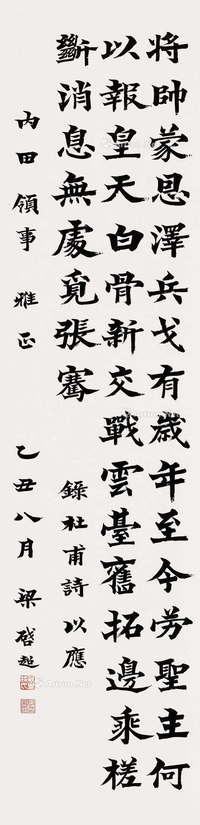 将帥蒙恩澤兵戈有歲年至今勞聖主何
以報皇天白骨新交戰雲臺舊拓邊乘槎
斷消息無處覓張騫
錄杜甫詩以應
内田領事 雅正 乙丑八月 梁啓超